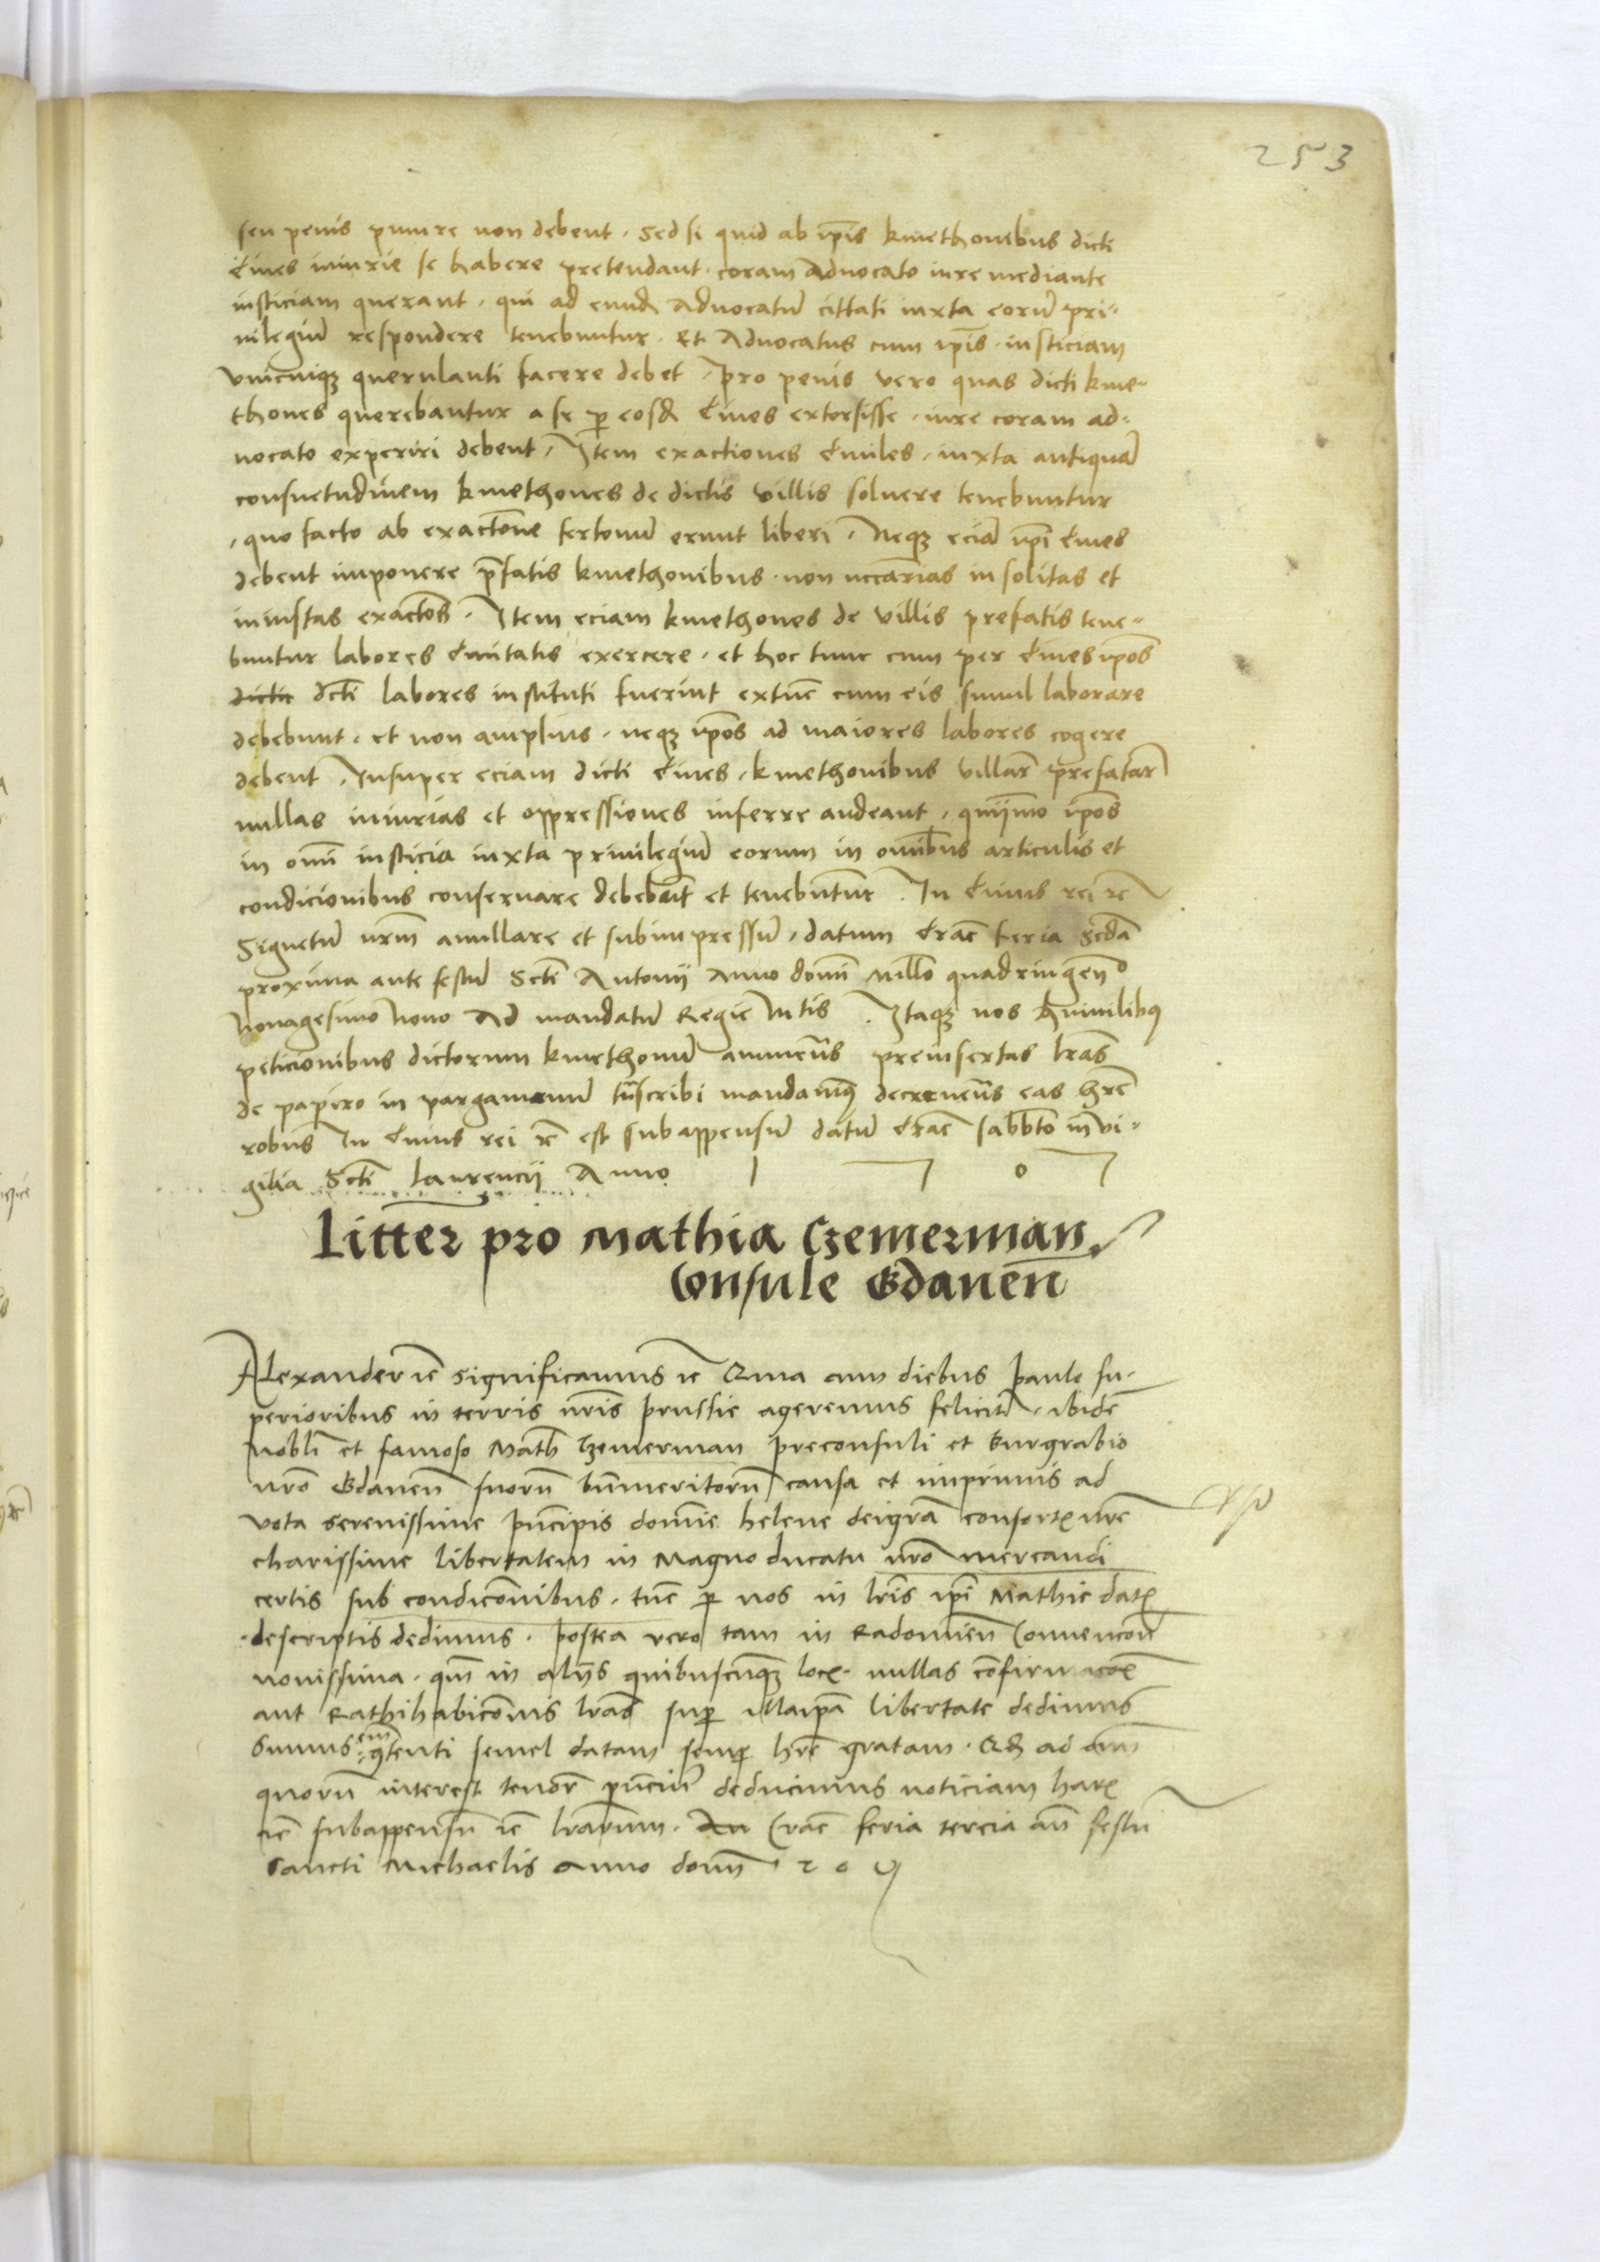 253
seu penis punire non debent. Sed si quid ab ip̄is kmethonibus dicti
Ciues iniurie se habere pretendant. coram Aduocato iure mediante
iusticiam querant. qui ad eund Aduocatū cittati iuxta eorū pri-
uilegiū respondere tenebuntur. Et Aduocatus cum ip̄is iusticiam
vnicuiqʒ querulanti facere debet. Pro penis vero quas dicti kme-
thones querebantur a se ꝑ eosd Ciues extorsisse. iure coram ad-
uocato experiri debent. Item exactiones Ciuiles. iuxta antiquā
consuetudinem kmethones de dictis villis soluere tenebuntur
. quo facto ab exactōne fertonū erunt liberi. Neqʒ eciā ip̄i Ciues
debent imponere p̄fatis kmethonibus. non necc̄arias insolitas et
iniustas exactōes. Item eciam kmethones de villis prefatis tene-
buntur labores Ciuitatis exercere. et hoc tunc cum per Ciues ip̄os
dicti dcti labores instituti fuerint extūc cum eis simul laborare
debebunt. et non amplius. neqʒ ip̄os ad maiores labores cogere
debent. Insuper eciam dicti Ciues. kmethonibus villar̄ prefatar̄
nullas iniurias et oppressiones inferre audeant. quiīmo ip̄os
in om̄i iusticia iuxta priuilegiū eorum in om̄ibus articulis et
condicionibus conseruare debebunt et tenebuntur. In Cuius rei rē
Signetū nr̄m annullare et subimpressū. datum Crac̄ feria Scd̄a
proxima ante festū Scti Antonii Anno domī Millo quadringen̄o
Nonagesimo Nono Ad mandatū Regie Mtis. Itaqʒ nos humilibus
peticionibus dictorum kmethonū annuen̄s preinsertas lr̄as
de papiro in pargamenū trāscribi mandauimus decreuen̄s eas hr̄e
robus In Cuius rei rē est subappensū datū Crac̄ sabbto in vi-
gilia Scti Laurencij Anno 1 7 0 7
Litter pro Mathia Czemerman
Consule Gdanen̄
Alexander rē Significamus rē Quia cum diebus paulo su-
perioribus in terris nr̄is prussie ageremus felicit̄. ibidē
Nobli et famoso Math̄ Czemerman preconsuli et Burgrabio
nr̄o Gdanen̄ suorū bn̄meritorū causa et imprimis ad
vota serenissime prīncipis domīe helene dei gr̄a consortꝫ nr̄e
charissime libertatem in Magno ducatu nr̄o mercandi
certis sub condicōnibus. tūc ꝑ nos in lr̄is ip̄i Mathie datꝫ
descriptis dedimus. postea vero tam in Radomien̄ Conuencōn
nouissima. qm̄ in aliis quibuscūqʒ locꝫ. nullas cōfirmacōꝫ
aut Rathihabicōnis lr̄as suꝑ illa ip̄a libertate dedimus
Sumus em̄ 9tenti semel datam semꝑ hr̄e gratam. Qd ad om̄
quorū interest tenor̄ pn̄ciū deducimus noticiam harꝫ
rē subappensū rē lr̄arum. Crac̄ feria tercia an̄ festū
Sancti Michaelis anno domī